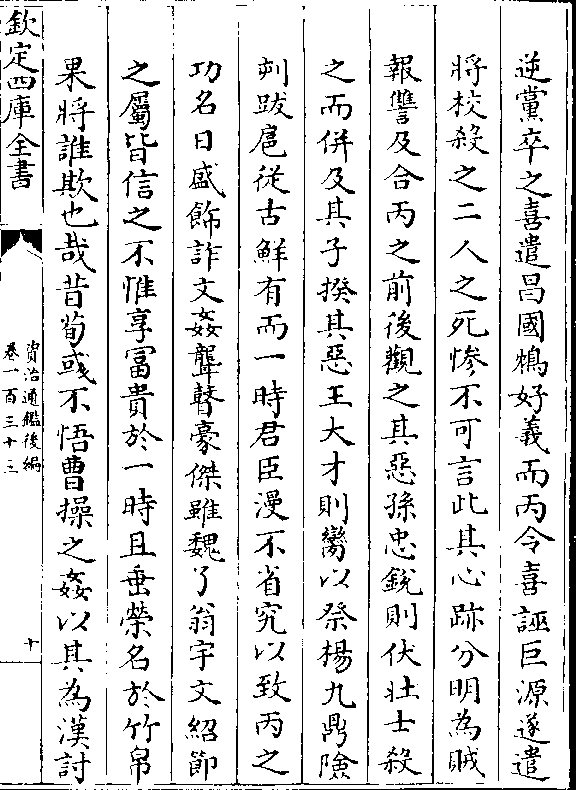 逆黨卒之喜遣昌國鴆好義而丙令喜誣巨源遂遣
將校殺之二人之死慘不可言此其心跡分明為賊
報讐及合丙之前後觀之其惡孫忠銳則伏壯士殺
之而併及其子揆其惡王大才則臠以祭楊九鼎險
刾跋扈從古鮮有而一時君臣漫不省究以致丙之
功名日盛飾詐文姦聾瞽豪傑雖魏了翁宇文紹節
之屬皆信之不惟享冨貴於一時且垂榮名於竹帛
果將誰欺也哉昔荀彧不悟曹操之姦以其為漢討
欽定四庫全書
資治通鑑後編
卷一百三十三
十